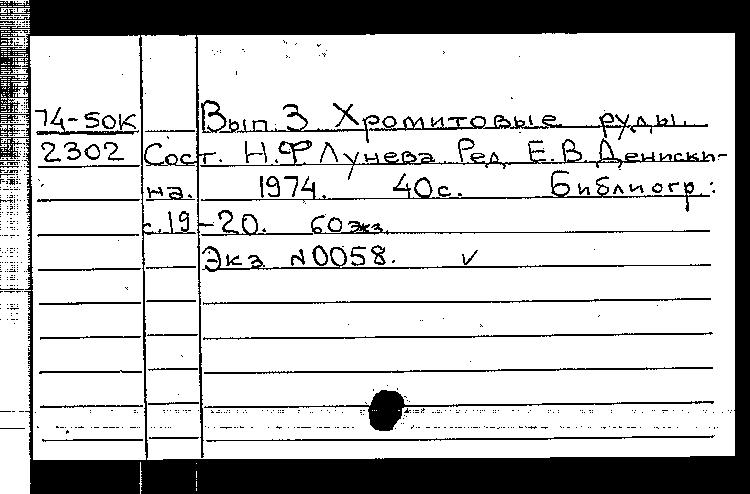 74-50К Вып. 3 Хромитовые руды.
2302 Сост. Н.Ф Лунева Ред. Е.В. Денискина-
на. 1974. 40с. Библиогр.:
с.19-20. 60экз.
Экз N0058. ✓